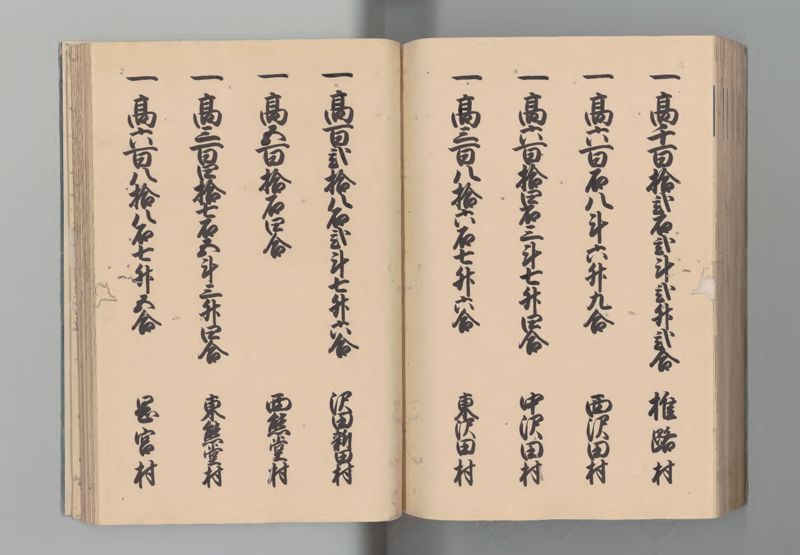 一 高千百拾弐石弐斗弐升弐合 椎路村
一 高六百石八斗六升九合 西沢田村
一 高六百拾四石三斗七升四合 中沢田村
一 高三百八拾六石七升六合 東沢田村
一 高百弐拾八石弐斗七升六合 沢田新田村
一 高五百拾石四合 西熊堂村
一 高三百四拾七石五斗三升四合 東熊堂村
一 高六百八拾八石七升五合 岡宮村